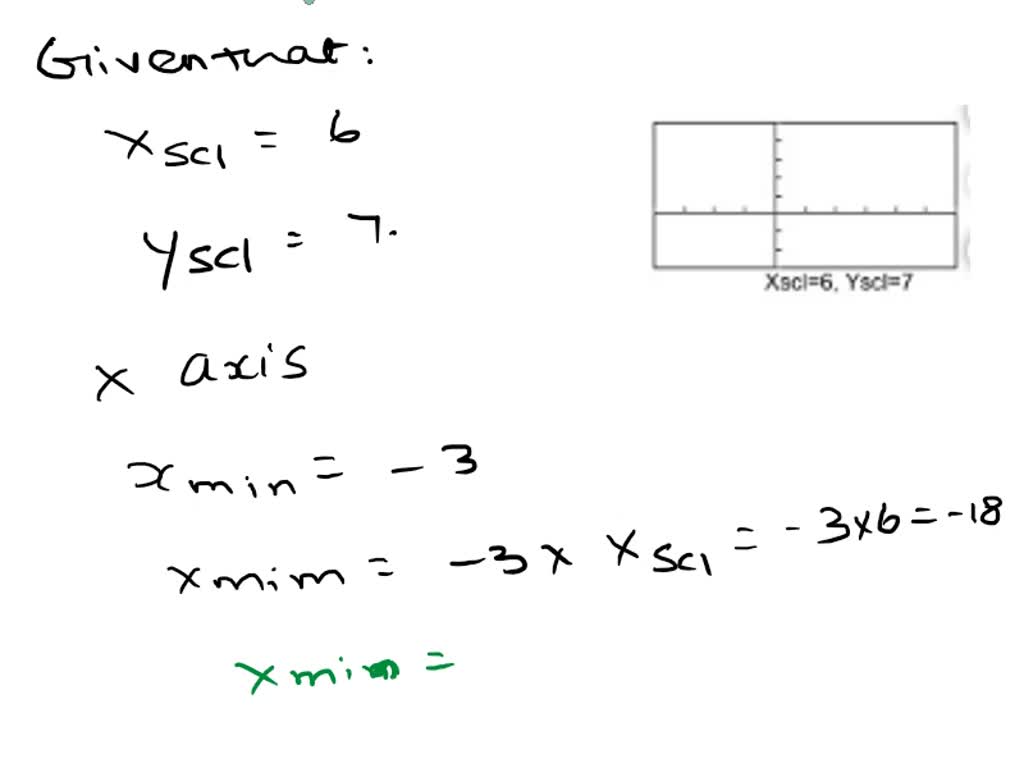 Given that:
xscl = 6
yscl = 7.
Xscl=6, Yscl=7
x axis
xmin = -3
xmim = -3 x xscl = -3x6 = -18
xmin =